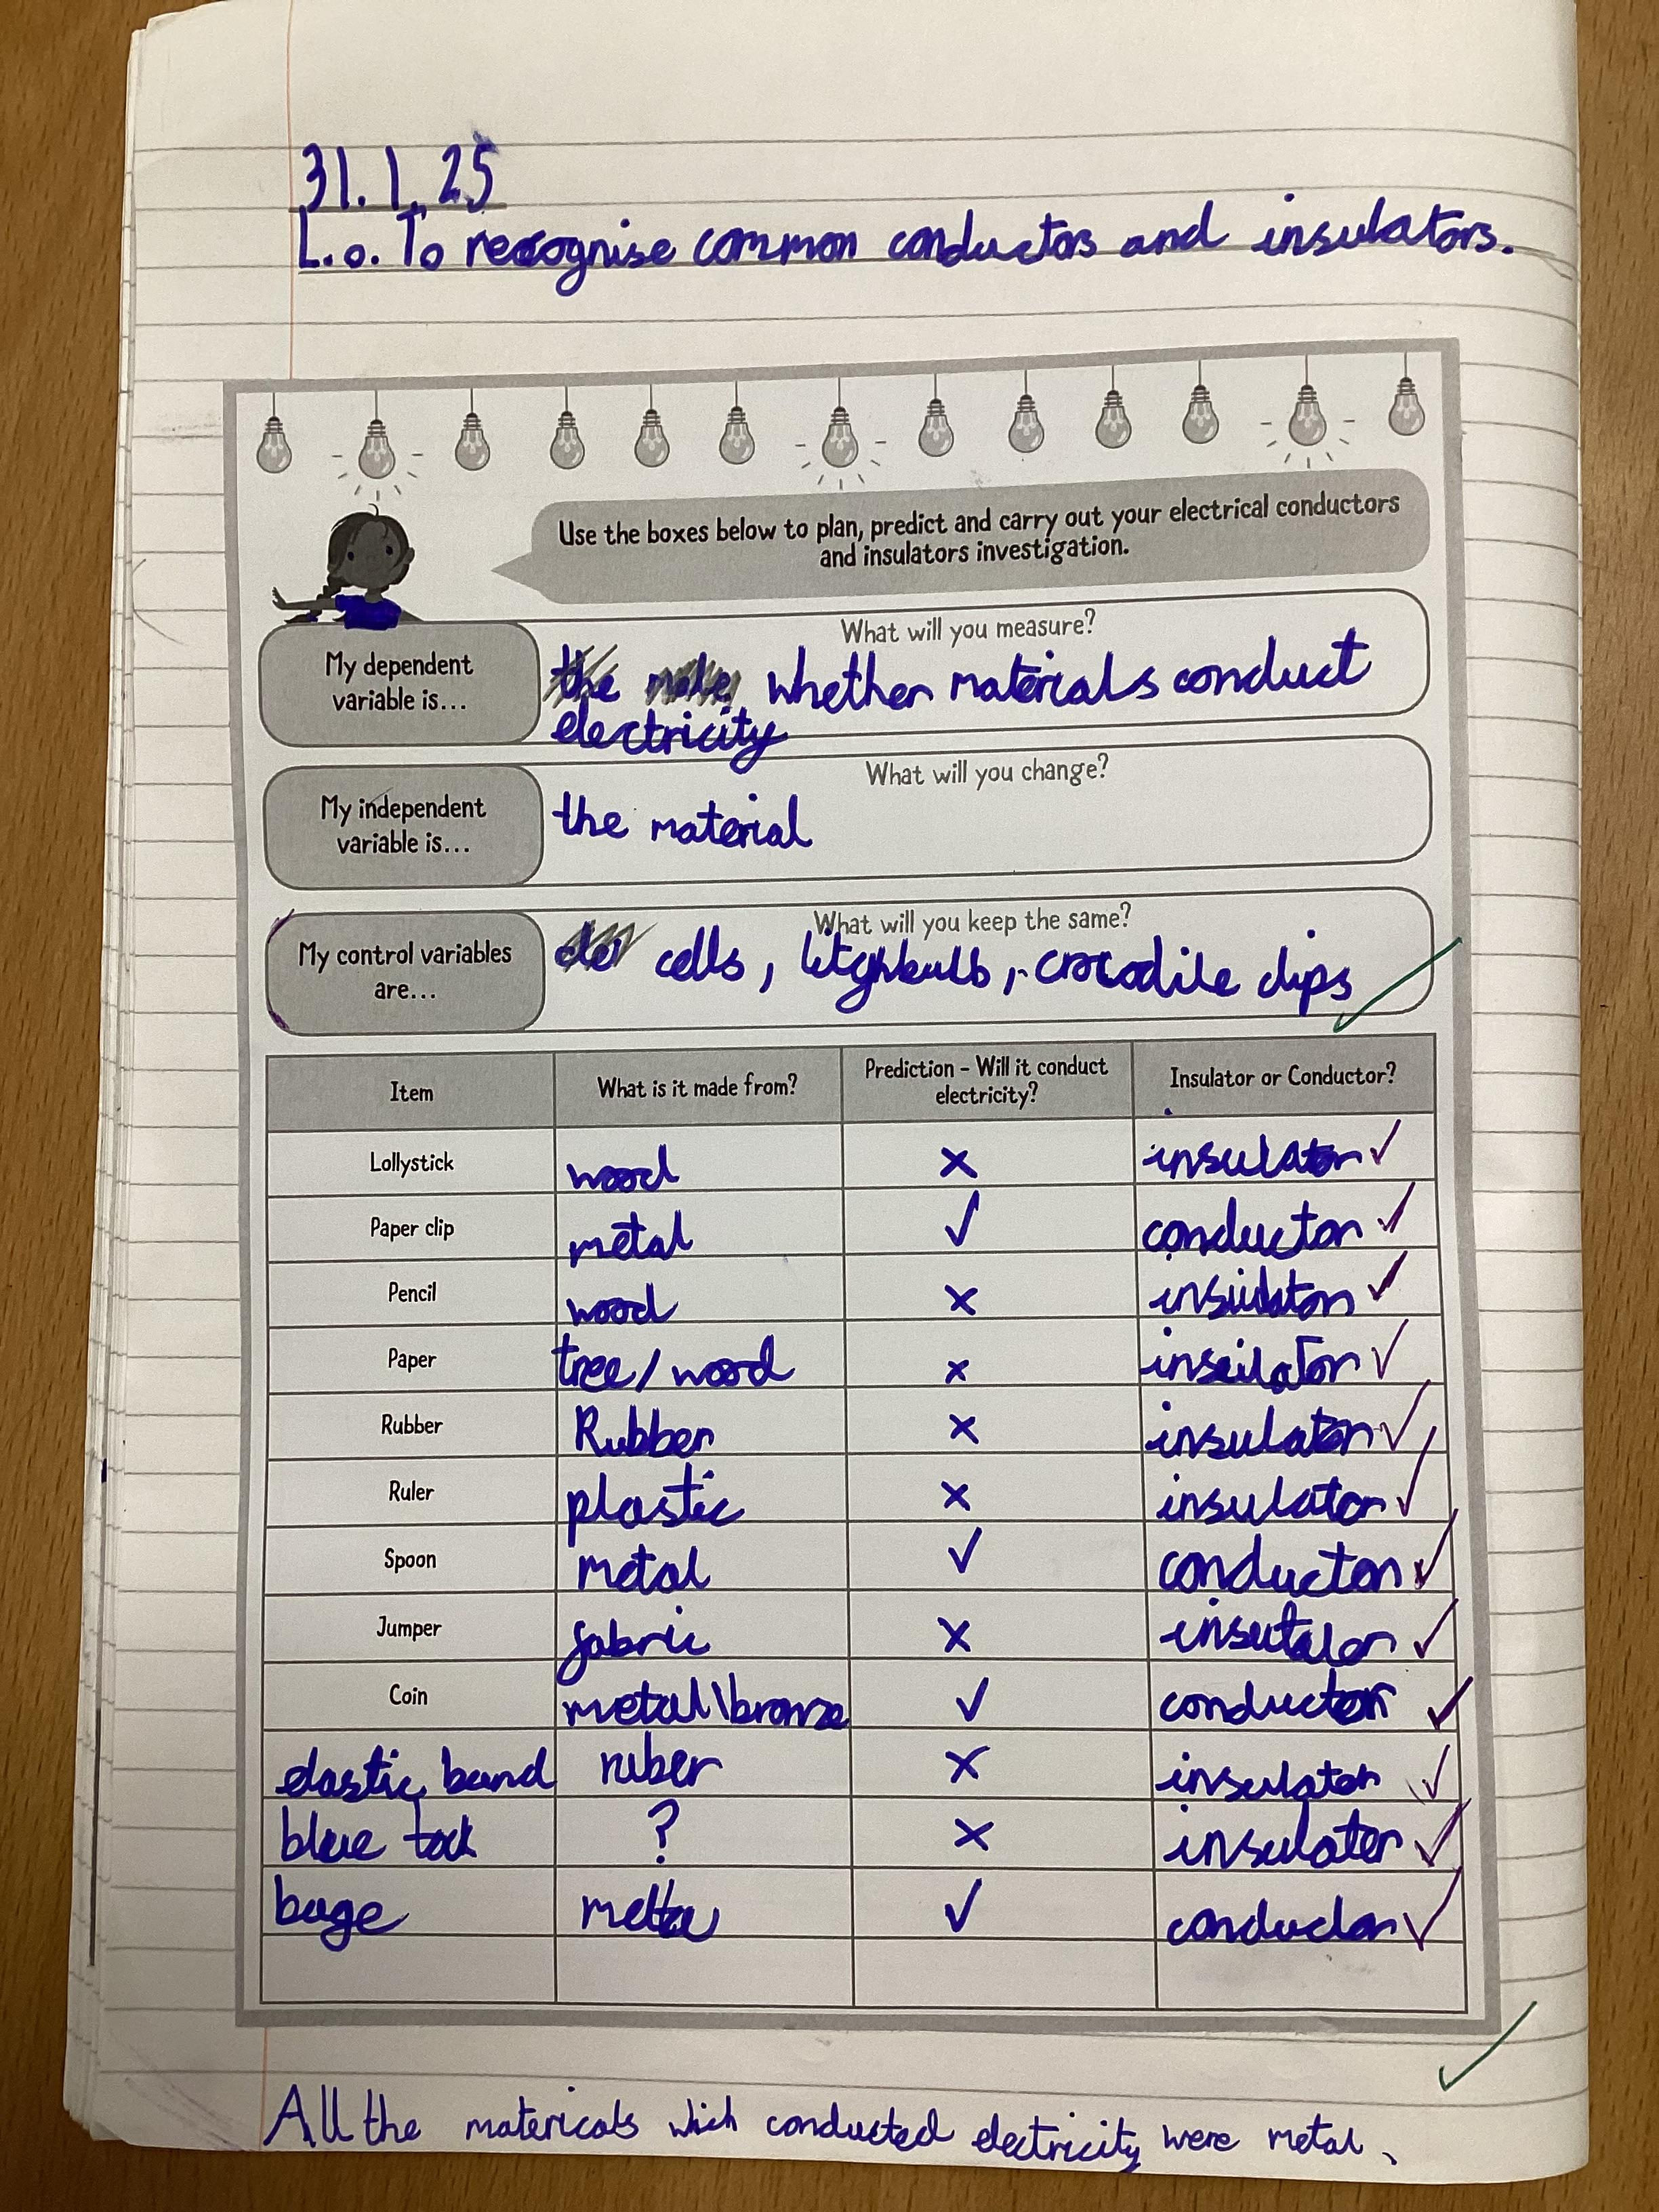 31.1.25
L.o. To recognise common conductors and insulators.
Use the boxes below to plan, predict and carry out your electrical conductors
and insulators investigation.
My dependent
variable is...
What will you measure?
the whether materials conduct
electricity
My independent
variable is...
What will you change?
the material
My control variables
are...
What will you keep the same?
cells, litghbulb, crocodile clips
Item What is it made from? Prediction - Will it conduct electricity? Insulator or Conductor?
Lollystick wood × insulator ✓
Paper clip metal ✓ conductor ✓
Pencil wood × insulator ✓
Paper tree/wood × insulator ✓
Rubber Rubber × insulator ✓
Ruler plastic × insulator ✓
Spoon metal ✓ conductor ✓
Jumper fabric × insutaler ✓
Coin metal\bronze ✓ conductor ✓
elastic band ruber × insulater ✓
blue tack ? × insulater ✓
bage ✓ conductor ✓
All the matericals wich conducted electricity were metal.